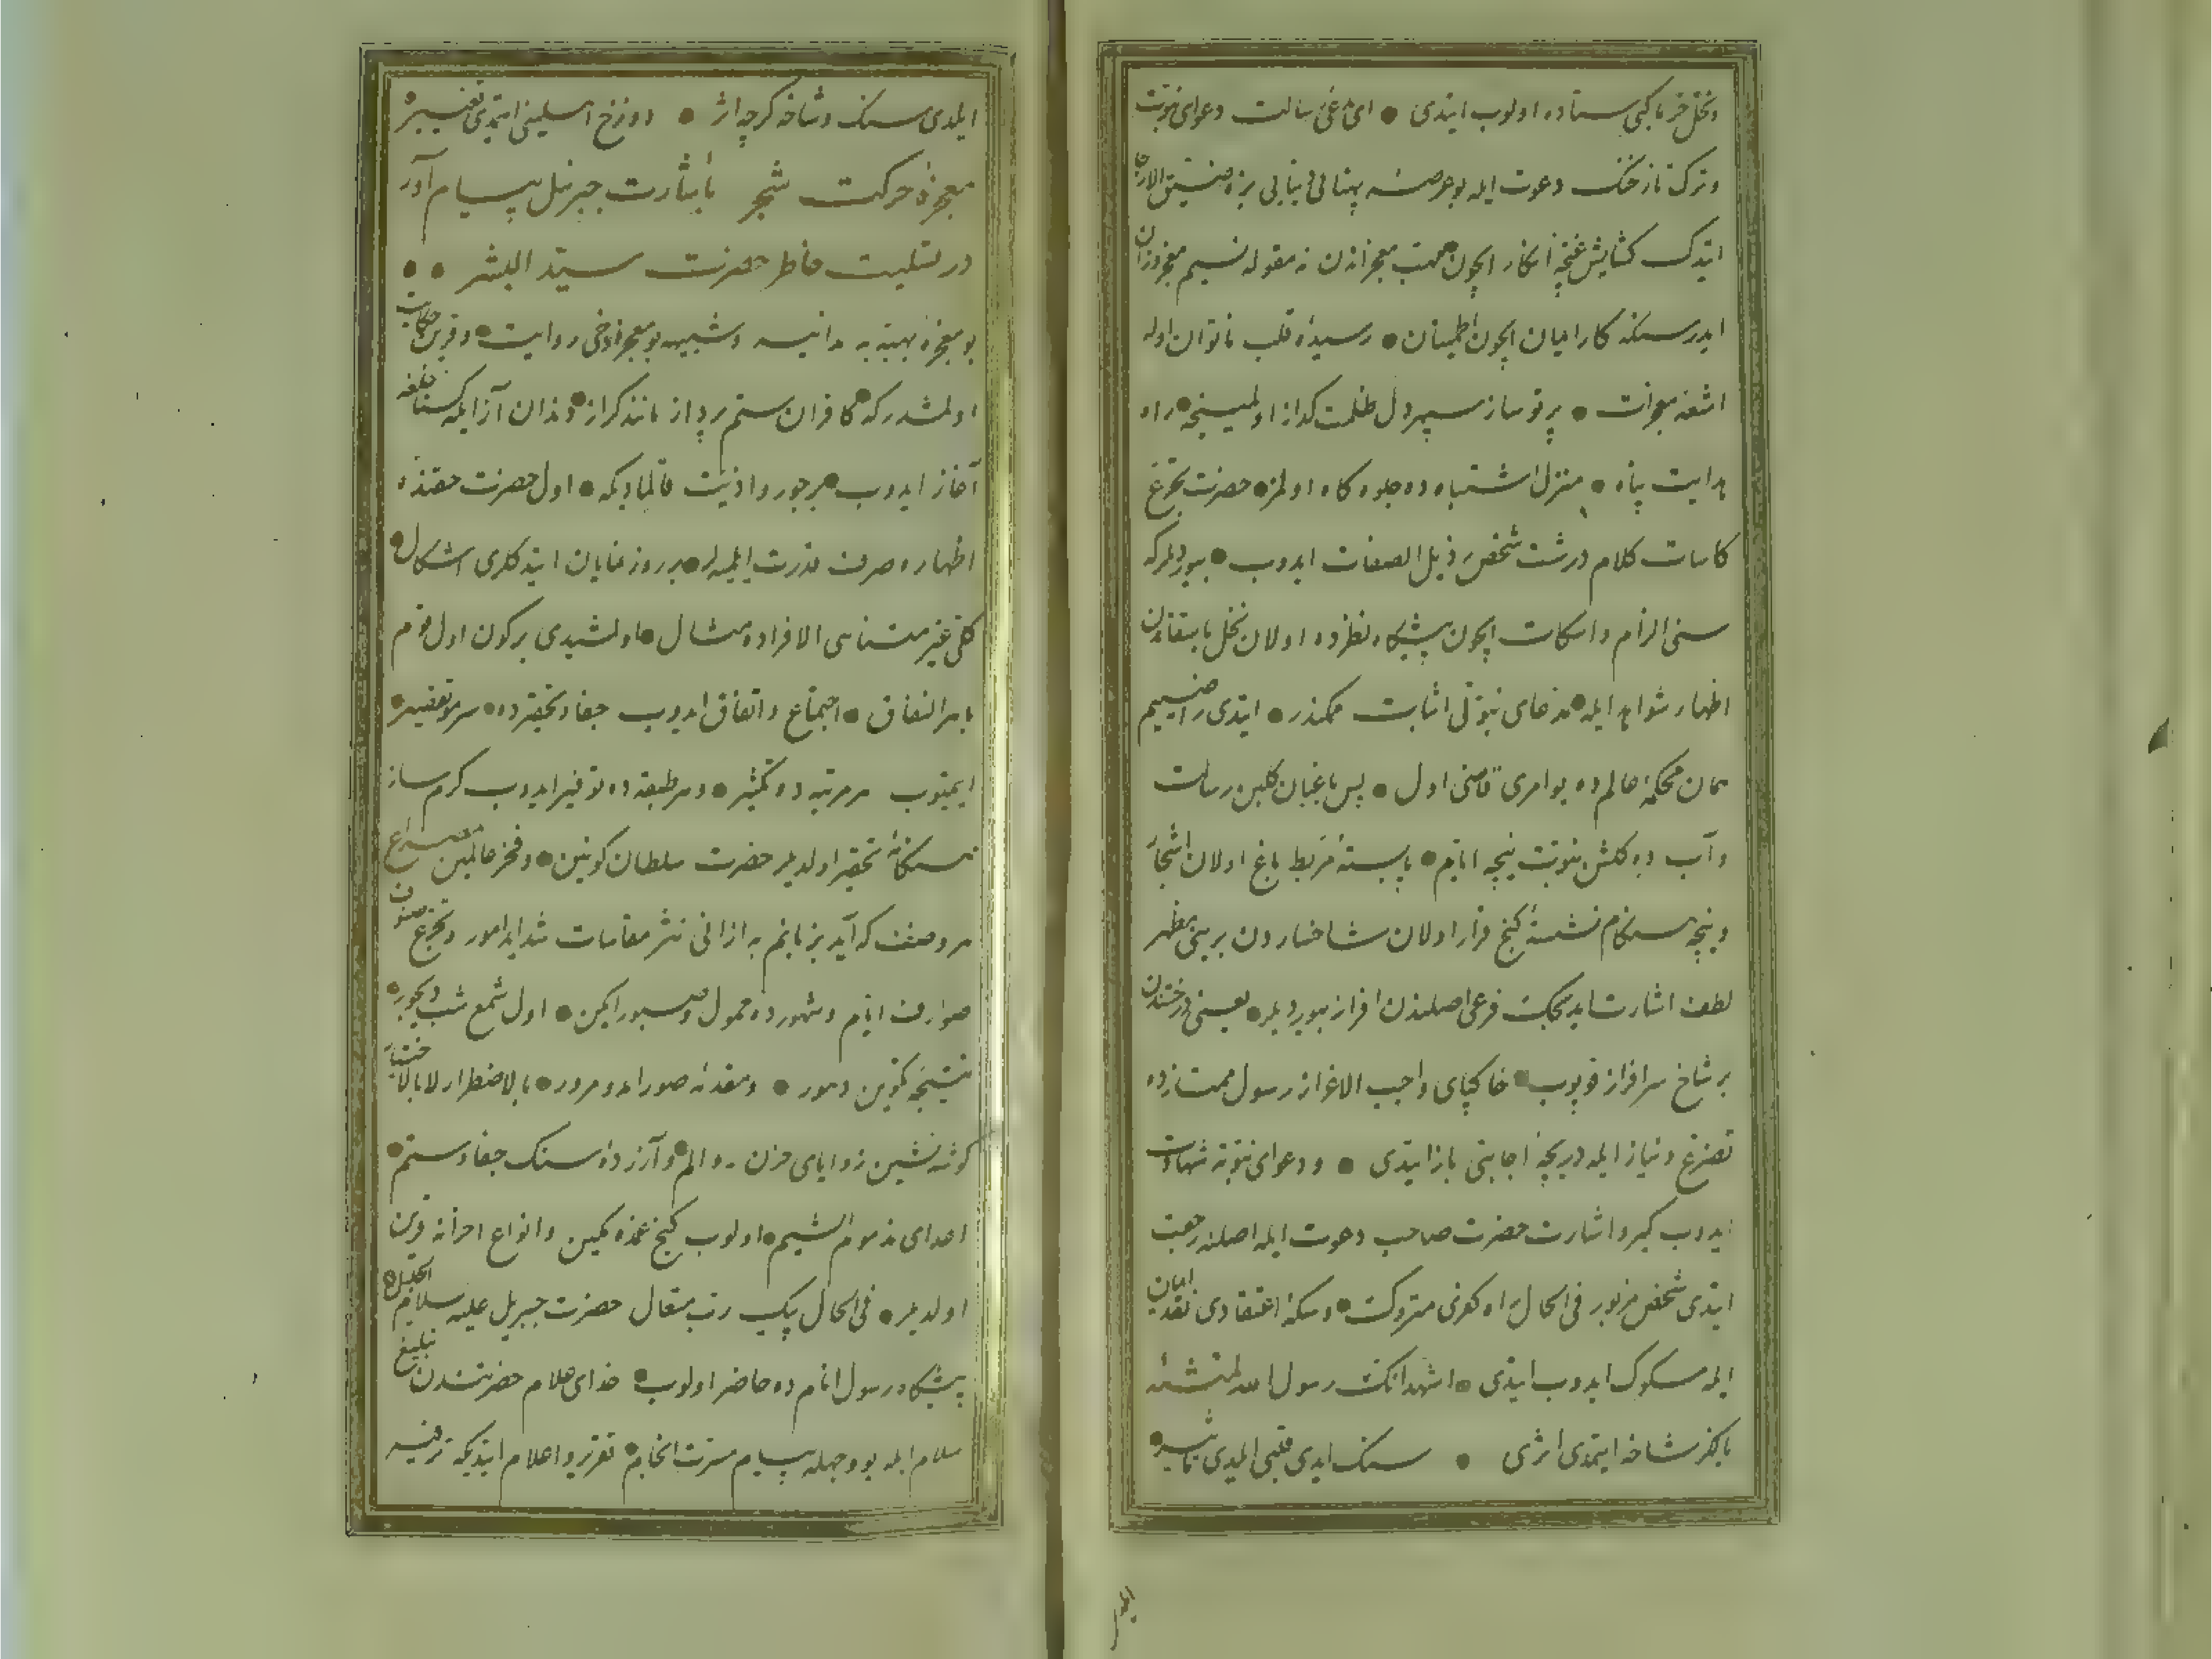 ونخل خرما كبی ستاده اولوب ایتدی • ای مدعی رسالت دعوای نبوت
وترك تاز خنك دعوت ایله بو عرصهٔ پهنایی بزه ضیق
ایتدك كشایش غنچهٔ انكار ایچون مهب معجزاتدن نه مقوله نسیم
ایدرسكنه كار ایمان ایچون اطمینان • رسیدهٔ قلب ناتوان اوله
اشعهٔ معجزات • پرتو ساز سپهر دل ظلمت كداز اولمینجه • راه
هدایت پناه • منزل اشتباه ده جلوه كاه اولمز • حضرت تجرع
كاسات كلام درشت شخص رذیل الصفات ایدوب • بیوردیلر كه
سنی الزام واسكات ایچون پیشكاه نظرده اولان نخل
اظهار شواهد ایله • مدعای نبوتی اثبات ممكندر • ایتدی راضییم
همان محكمهٔ عالمده بو امری قاضی اول • پس باغبان كلبن رسالت
وآب ده كلشن نبوت نیچه ایام • پابستهٔ مربط باغ اولان اشجار
ونیچه هنكام نشستهٔ كنج قرار اولان شاخساردن برینی مظهر
لطف اشارت ایدیجك فرعی اصلندن افراز بیوردیلر • یعنی درختدن
بر شاخ سرافراز قوپوب • خاكپای واجب الاعزاز رسول ممتازده
تضرع ونیاز ایله دریچهٔ اجابتی باز ایتدی • ودعوای نبوته شهادت
ایدوب كیرو اشارت حضرت صاحب دعوت ایله اصلنه رجعت
ایتدی شخص مزبور فی الحال راه كفری متروك • وسكهٔ اعتقادی نقد ایمان
ایله مسكوك ایدوب ایتدی • اشهد انك رسول الله لمنشئه
باكز شاخه ایتمدی اثری • سنك ایدی قلبی ایلدی تأثیر
ایلدی سنك وشاخه كرچه اثر • دوزخ اسلیغی ایتمدی تغییر
معجزهٔ حركت شجر بابشارت جبرئیل پیام آور
در تسلیت خاطر حضرت سید البشر • •
بو معجزهٔ بهیه یه مدانیه وشبیه بو معجزه دخی روایت • وقرین حكایت
اولمشدر كه • كافران ستم پرداز مانند كراز • دندان آز ایله كستاخلغه
آغاز ایدوب • هر جور واذیت قالمادیكه • اول حضرت حقنده
اظهار وصرف قدرت ایلمیه لر • هر روز نمایان ایتدكلری اشكال
كلی غیر متناهی الافراده مثال • اولمشیدی بركون اول قوم
باهر النفاق • اجتماع واتفاق ایدوب جفا وتحقیرده • سرمو تقصیر
ایتمیوب هر مرتبه ده تكثیر • وهر طبقه ده توفیر ایدوب كرم ساز
هنكامهٔ تحقیر اولدیلر حضرت سلطان كونین • وفخر عالمین مصراع
هر وصف كه آید بزبانم به ازانی نثر مقاسات شداید امور وتجرع صنوف
صوارف ایام وشهورده حمول وصبور ایكن • اول شمع شب دیجور
نتیجهٔ تكوین دهور • ومقدمهٔ صور اهل ومرور • بالاضطرار لا بالاختیار
كوشه نشین زوایای حزن والم • وآزردهٔ سنك جفا وستم •
اعدای مذموم الشیم • اولوب كنج غمده كمین وانواع احزانه قرین
اولدیلر • فی الحال پیك رب متعال حضرت جبریل علیه سلام الجلیل
پیشكاه رسول انامده حاضر اولوب • خدای علام حضرتندن تبلیغ
سلام ایله بو وجهله پیام مسرت انجام • تقریر واعلام ایتدیكه
ایلدی